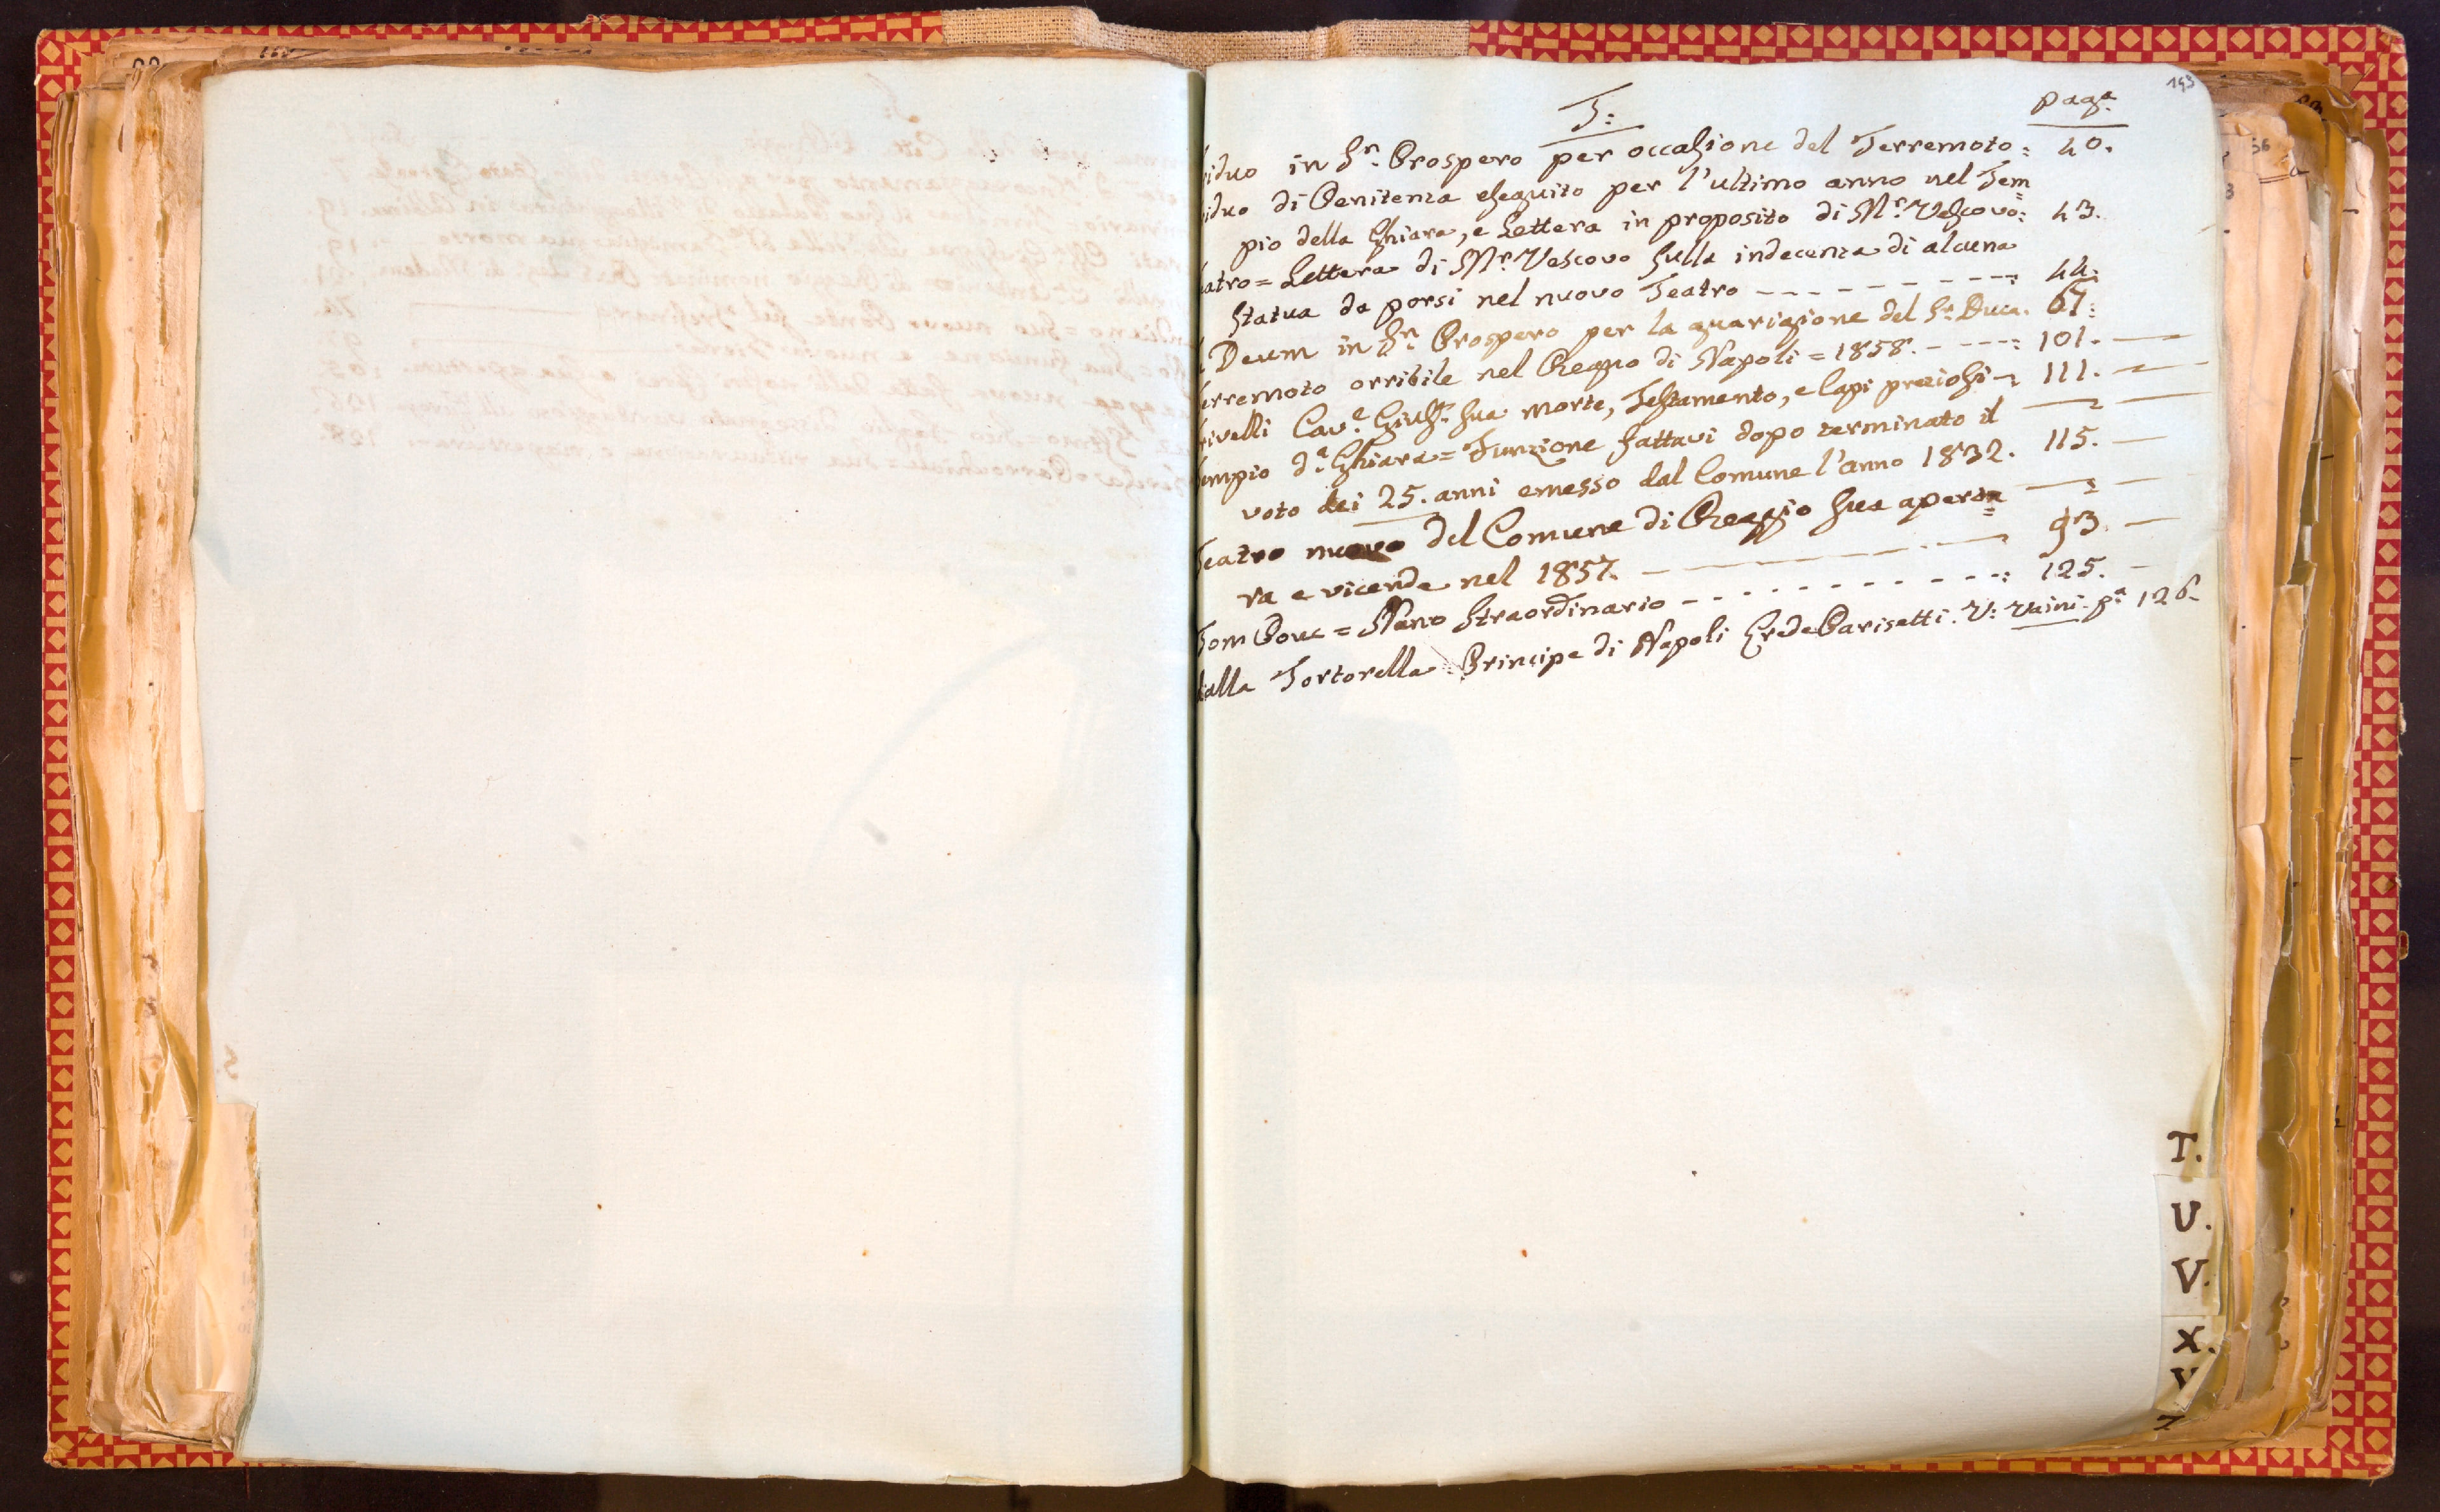 193
T:
pag.ª
iduo in S.n Prospero per occasione del Terremoto: 40.
iduo di Penitenza eseguito per l'ultimo anno nel Tem=
pio della Ghiara, e Lettera in proposito di M.r Vescovo: 43.
atro = Lettera di M.r Vescovo sulla indecenza di alcuna
statua da porsi nel nuovo Teatro - - - - - - - - : 44.
Deum in S.n Prospero per la guarigione del S.r Duca. 67:
erremoto orribile nel Regno di Napoli = 1858. - - - -: 101.
rivelli Cav.e Giuse. sua morte, Testamento, e Capi preziosi - 111.
empio d.ª Ghiara = Funzione fattavi dopo terminato il
voto dei 25. anni emesso dal Comune l'anno 1832. 115.
Teatro nuovo del Comune di Reggio sua apertu=
ra e vicende nel 1857. 93.
Tom Pouc = Nano straordinario - - - - - - - - -: 125.
dalla Tortorella = Principe di Napoli Erede Parisetti. V: Vaini. p.ª 126.
T.
U.
V.
X.